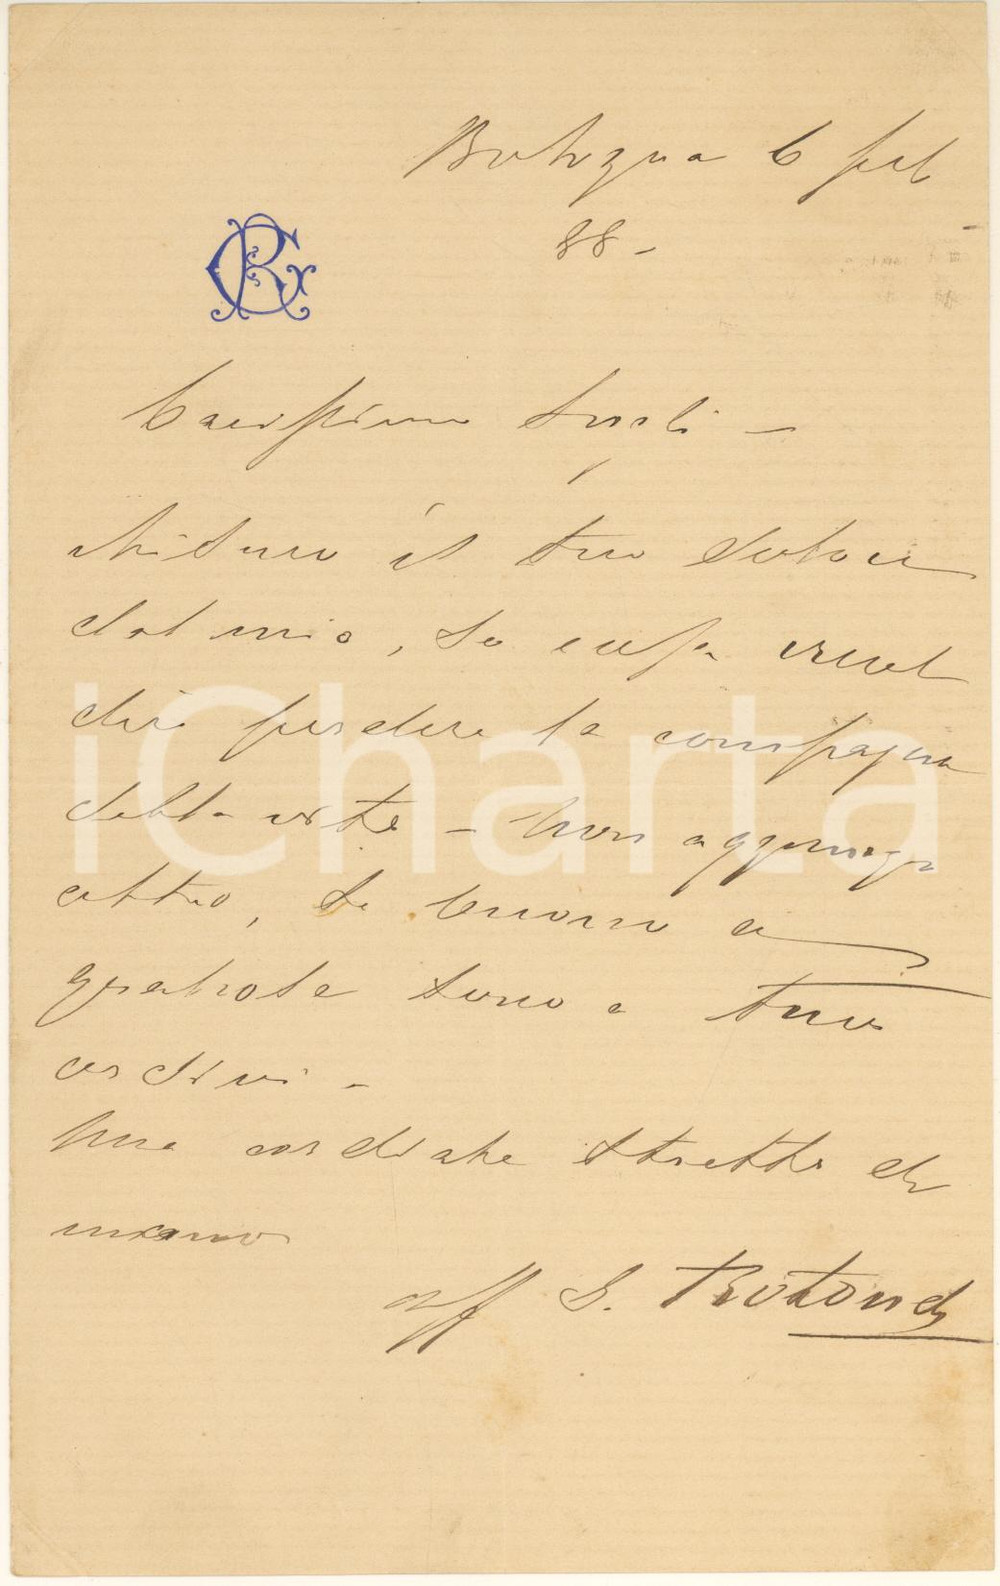 Bologna 6 feb
88 -
GR
Carissimo
Misuro il tuo dolore
dal mio, so cosa vuol
dire perdere la compagna
della vita - Non aggiungo
altro, se buono a
qualcosa sono a tuoi
ordini -
Una cordiale stretta di
mano
aff G. Rotondi
iCharta